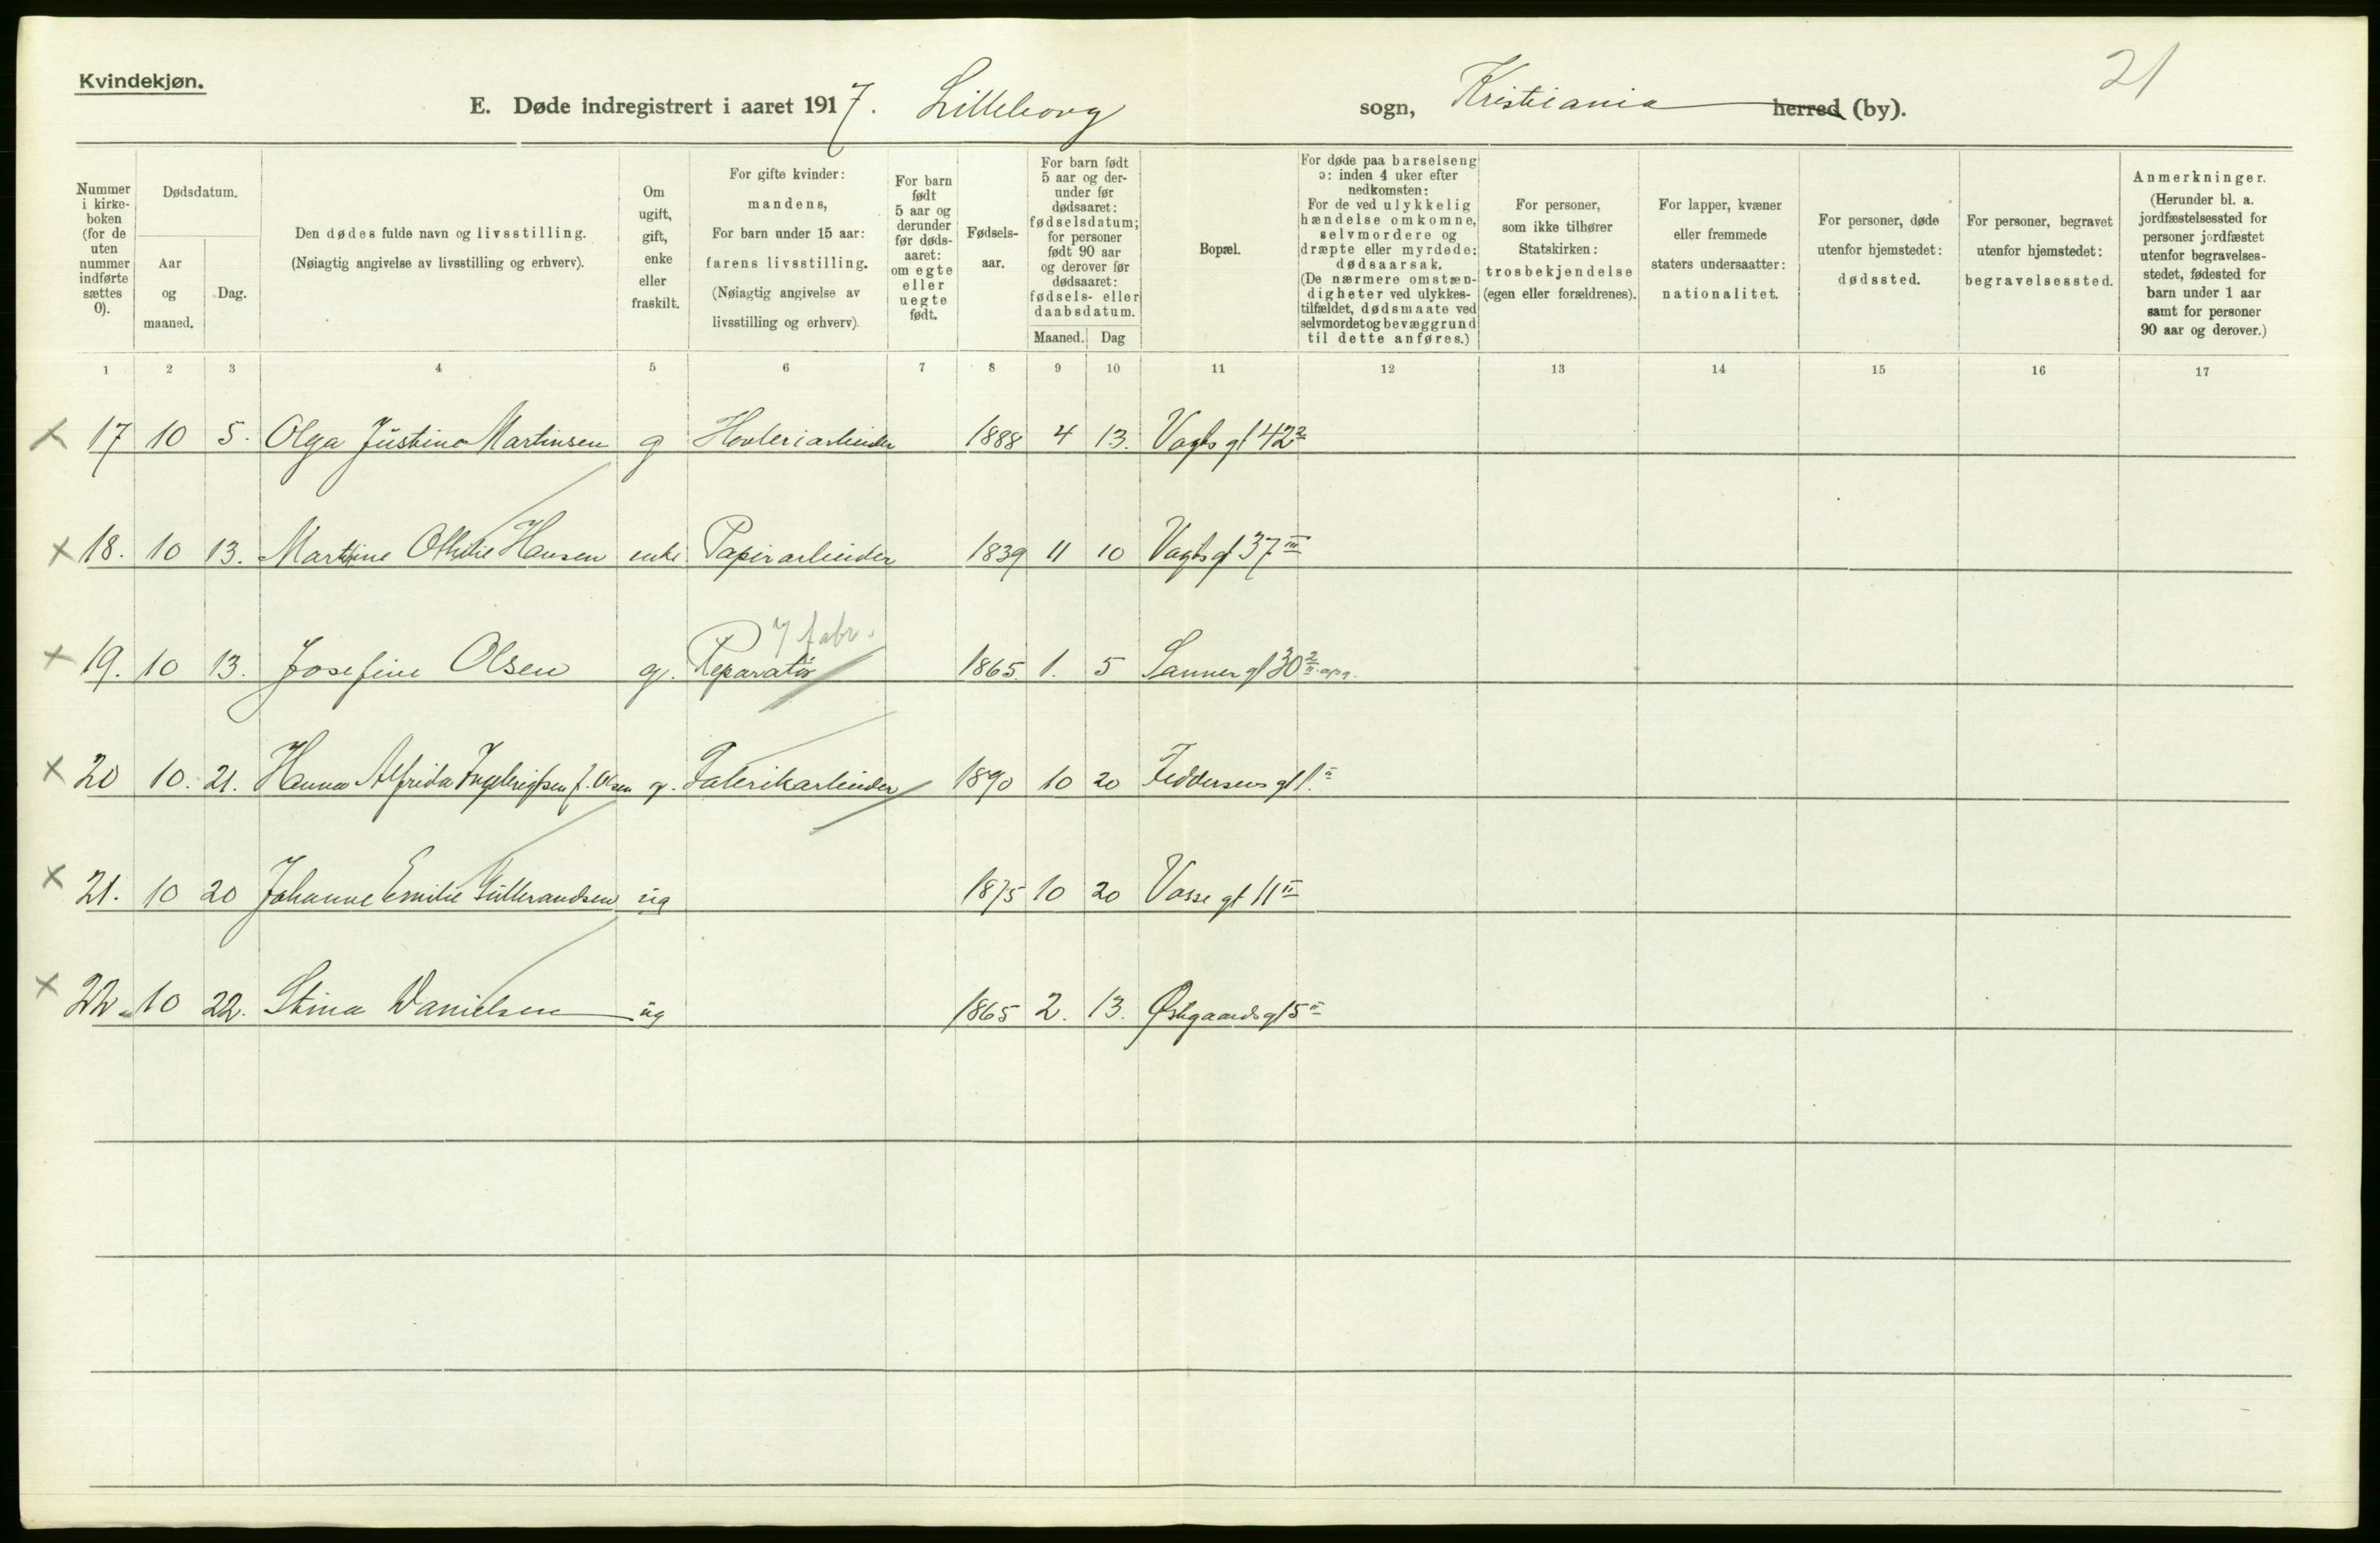 Kvindekjøn.
21
E. Døde indregistrert i aaret 1917. Lilleborg sogn, Kristiania herred (by).
Nummer i kirke-boken (for de uten nummer indførte sættes 0).
Dødsdatum.
Aar og maaned.
Dag.
Den dødes fulde navn og livsstilling.
(Nøiagtig angivelse av livsstilling og erhverv).
Om ugift, gift, enke eller fraskilt.
For gifte kvinder: mandens,
For barn under 15 aar: farens livsstilling.
(Nøiagtig angivelse av livsstilling og erhverv).
For barn født 5 aar og derunder før døds-aaret: om egte eller uegte født.
Fødsels-aar.
For barn født 5 aar og der-under før dødsaaret: fødselsdatum; for personer født 90 aar og derover før dødsaaret: fødsels- eller daabsdatum.
Maaned. Dag
Bopæl.
For døde paa barselseng ɔ: inden 4 uker efter nedkomsten:
For de ved ulykkelig hændelse omkomne, selvmordere og dræpte eller myrdede: dødsaarsak.
(De nærmere omstæn-digheter ved ulykkes-tilfældet, dødsmaate ved selvmordet og bevæggrund til dette anføres.)
For personer, som ikke tilhører Statskirken: trosbekjendelse (egen eller forældrenes).
For lapper, kvæner eller fremmede staters undersaatter: nationalitet.
For personer, døde utenfor hjemstedet: dødssted.
For personer, begravet utenfor hjemstedet: begravelsessted.
Anmerkninger.
(Herunder bl. a. jordfæstelsessted for personer jordfæstet utenfor begravelses-stedet, fødested for barn under 1 aar samt for personer 90 aar og derover.)
1 2 3 4 5 6 7 8 9 10 11 12 13 14 15 16 17
x 17 10 5. Olga Justine Martinsen g Høvleriarbeider 1888 4 13. Vogts gt 42 2
x 18. 10 13. Martine Othilie Hansen enke Papirarbeider 1839 11 10 Vogts gt 37 III
7 fabr.
x 19. 10 13. Josefine Olsen g. Reparatør 1865. 1. 5 Sanner gt 30 2 II opg.
x 20 10. 21. Hanna Alfrida Ingebrigtsen f. Olsen g. Fabrikarbeider 1890 10 20 Feddersens gt 1. II
x 21. 10 20 Johanne Emilie Gullerandsen ug 1875 10 20 Vosse gt 11 II
x 22. 10 22. Stina Danielsen ug 1865 2. 13. Østgaards gt 5 II